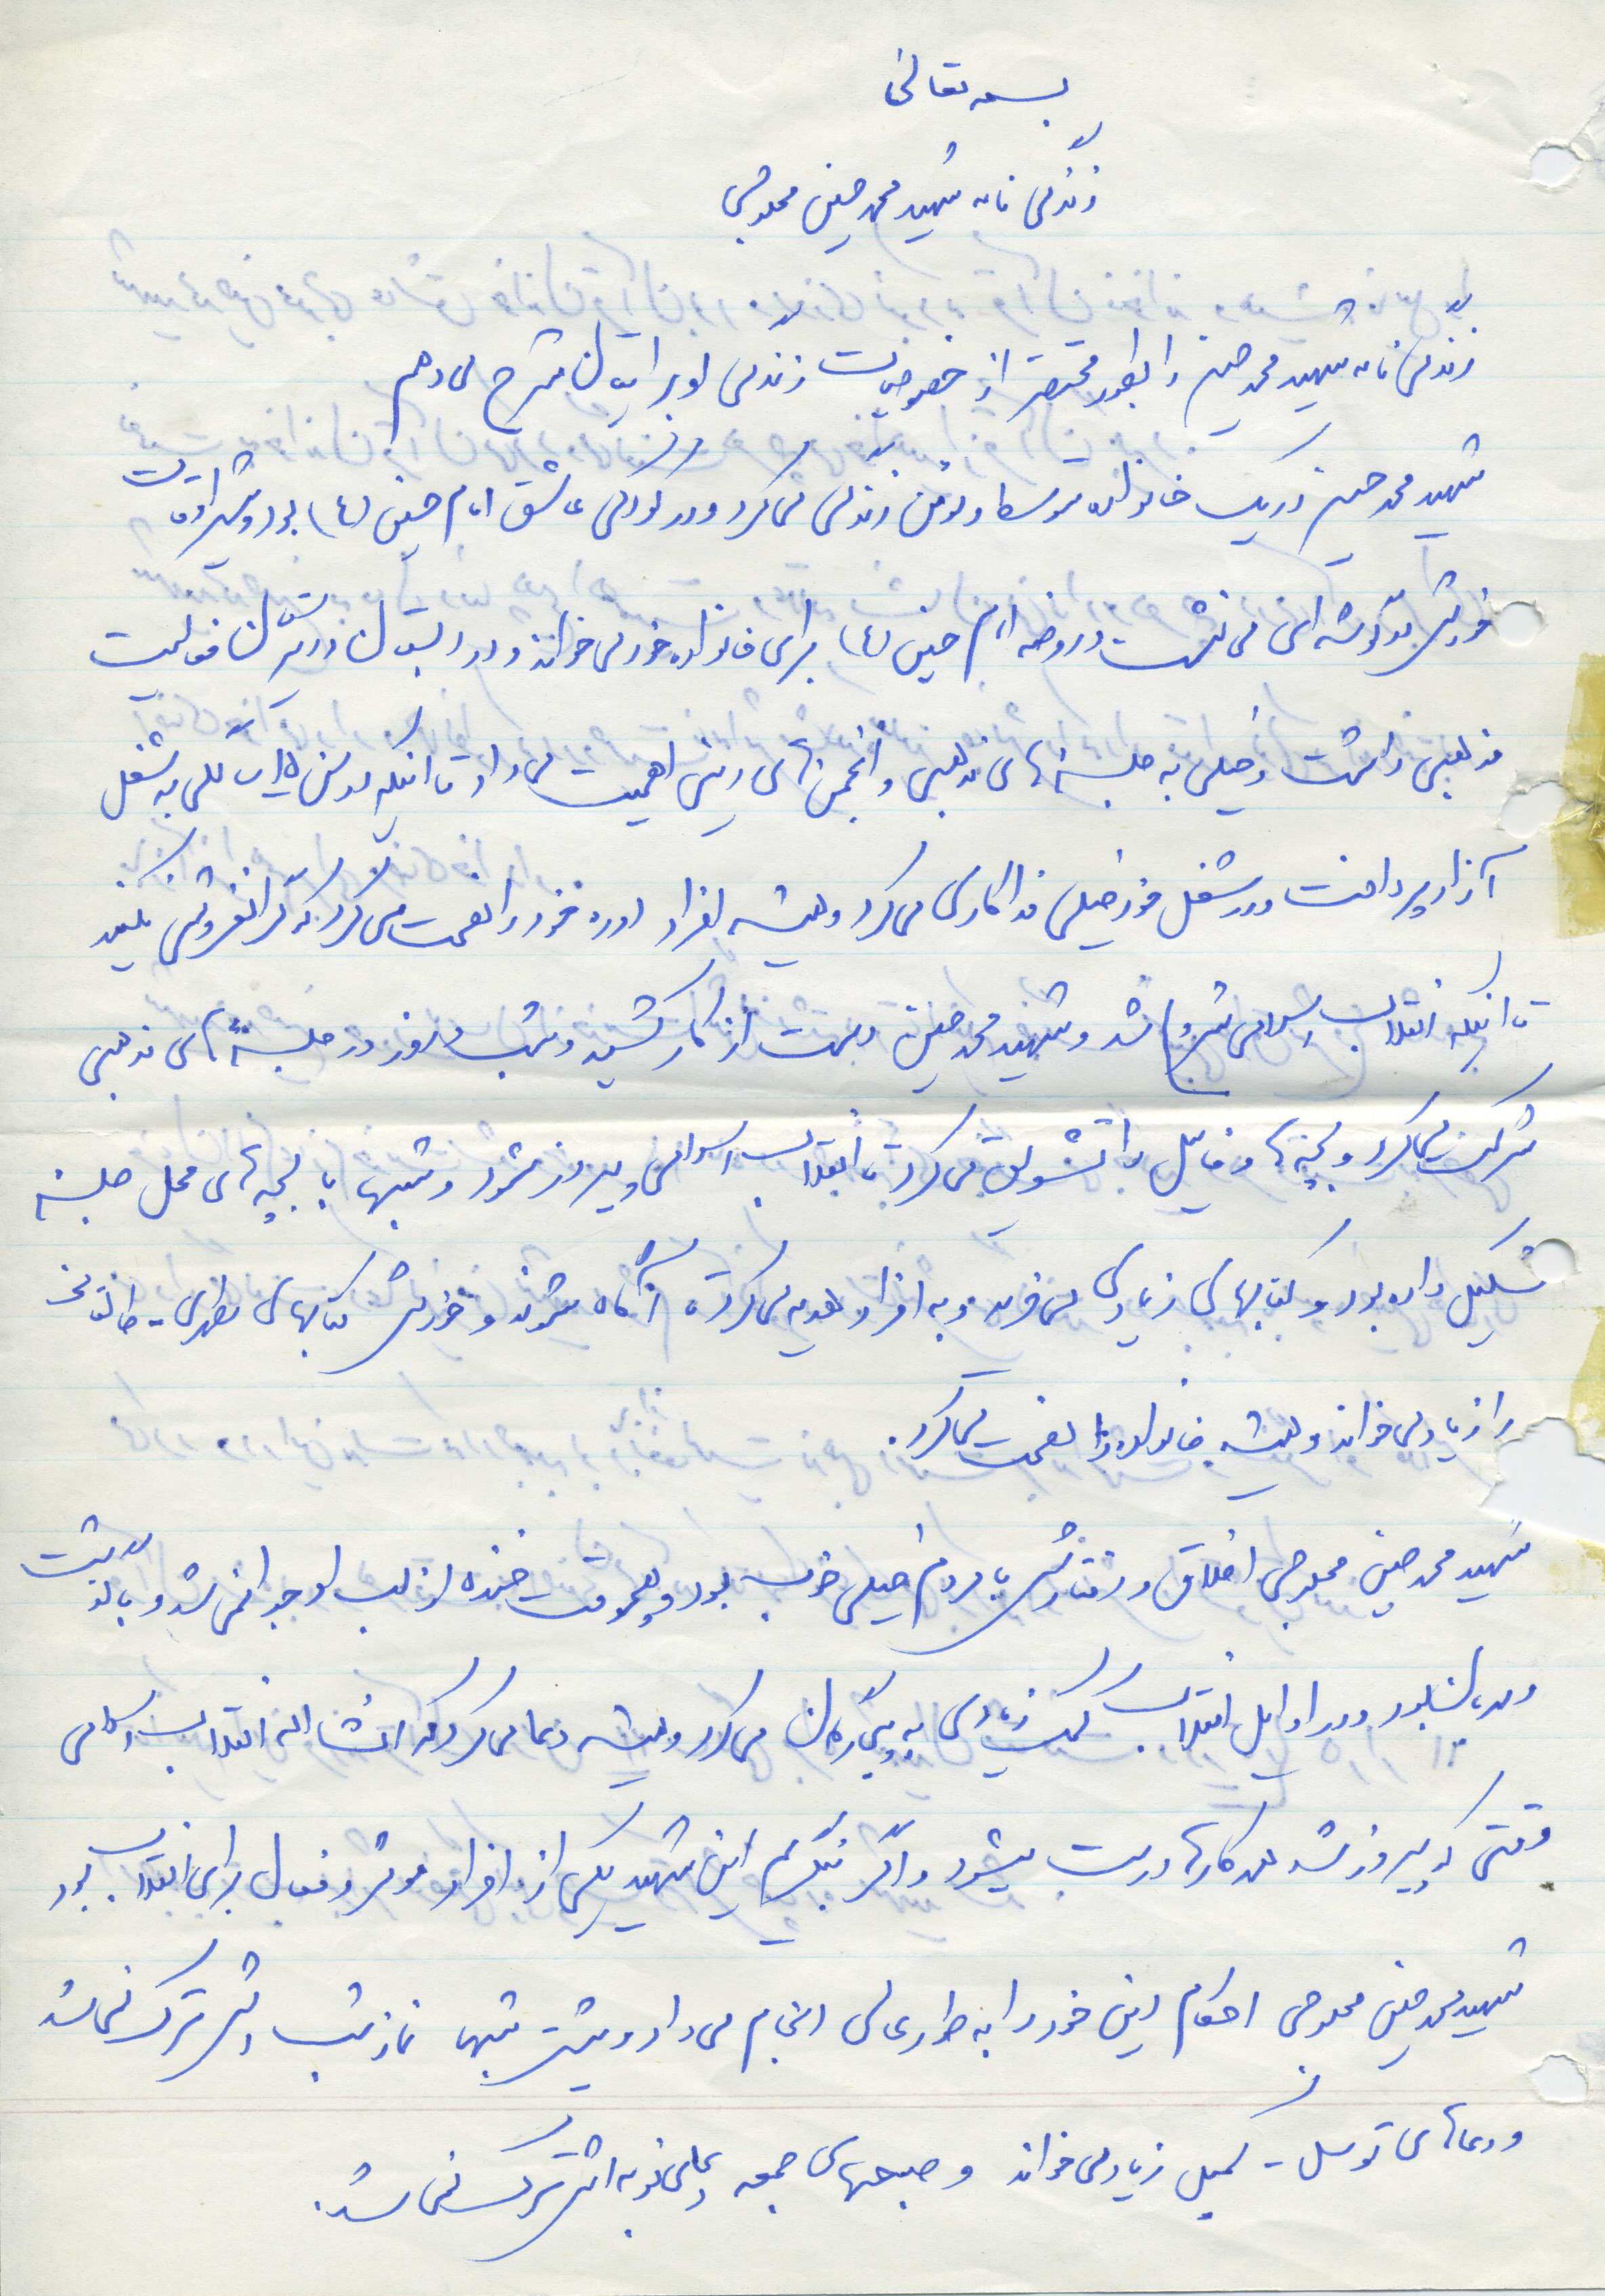 بسمه تعالی
زندگی نامه شهید محمد حسین محلوجی
زندگی نامه شهید محمد حسین را بطور مختصر از خصوصیات زندگی او برایتان شرح می دهم
شهید محمد حسین در یک خانواده متوسط و مؤمن زندگی می کرد و در کودکی عاشق امام حسین (ع) بود و
خودش در گوشه ای می نشست و روضه امام حسین (ع) برای خانواده خود می خواند و در دبستان و دبیرستان فعالیت
مذهبی داشت و خیلی به جلسه های مذهبی و انجمن های دینی اهمیت می داد تا اینکه در سن ۱۵ سالگی به شغل
آزاد پرداخت و در شغل خود خیلی فداکاری می کرد و همیشه افراد دوره خود را نصیحت می کرد که گرانفروشی نکنید
تا اینکه انقلاب اسلامی شروع شد و شهید محمد حسین دست از کار کشید و شب و روز در جلسه های مذهبی
شرکت میکرد و بچه ها و فامیل را تشویق می کرد تا انقلاب اسلامی پیروز شود و شبها با بچه های محل جلسه
تشکیل داده بود و کتابهای زیادی می خرید و به افراد هدیه می کرد تا آگاه شوند و خودش کتابهای مطهری - طالقانی
را زیاد می خواند و همیشه خانواده را نصیحت میکرد.
شهید محمد حسین محلوجی اخلاق و رفتارش با مردم خیلی خوب بود و هیچوقت خنده از لب او جدا نمی شد و با
و مهربان بود و در اوایل انقلاب کمک زیادی به می کرد و همیشه دعا می کرد که انشاء اله انقلاب اسلامی
وقتی که پیروز شد همه کارها درست میشود و اگر بنگریم این شهید یکی از افراد موثر و فعال برای انقلاب بود
شهید محمد حسین محلوجی احکام دینی خود را به طور عالی انجام می داد و بیشتر شبها نماز شب اش ترک نمی شد
و دعاهای توسل - کمیل زیاد می خواند و صبحهای جمعه دعای ندبه اش ترک نمی شد.